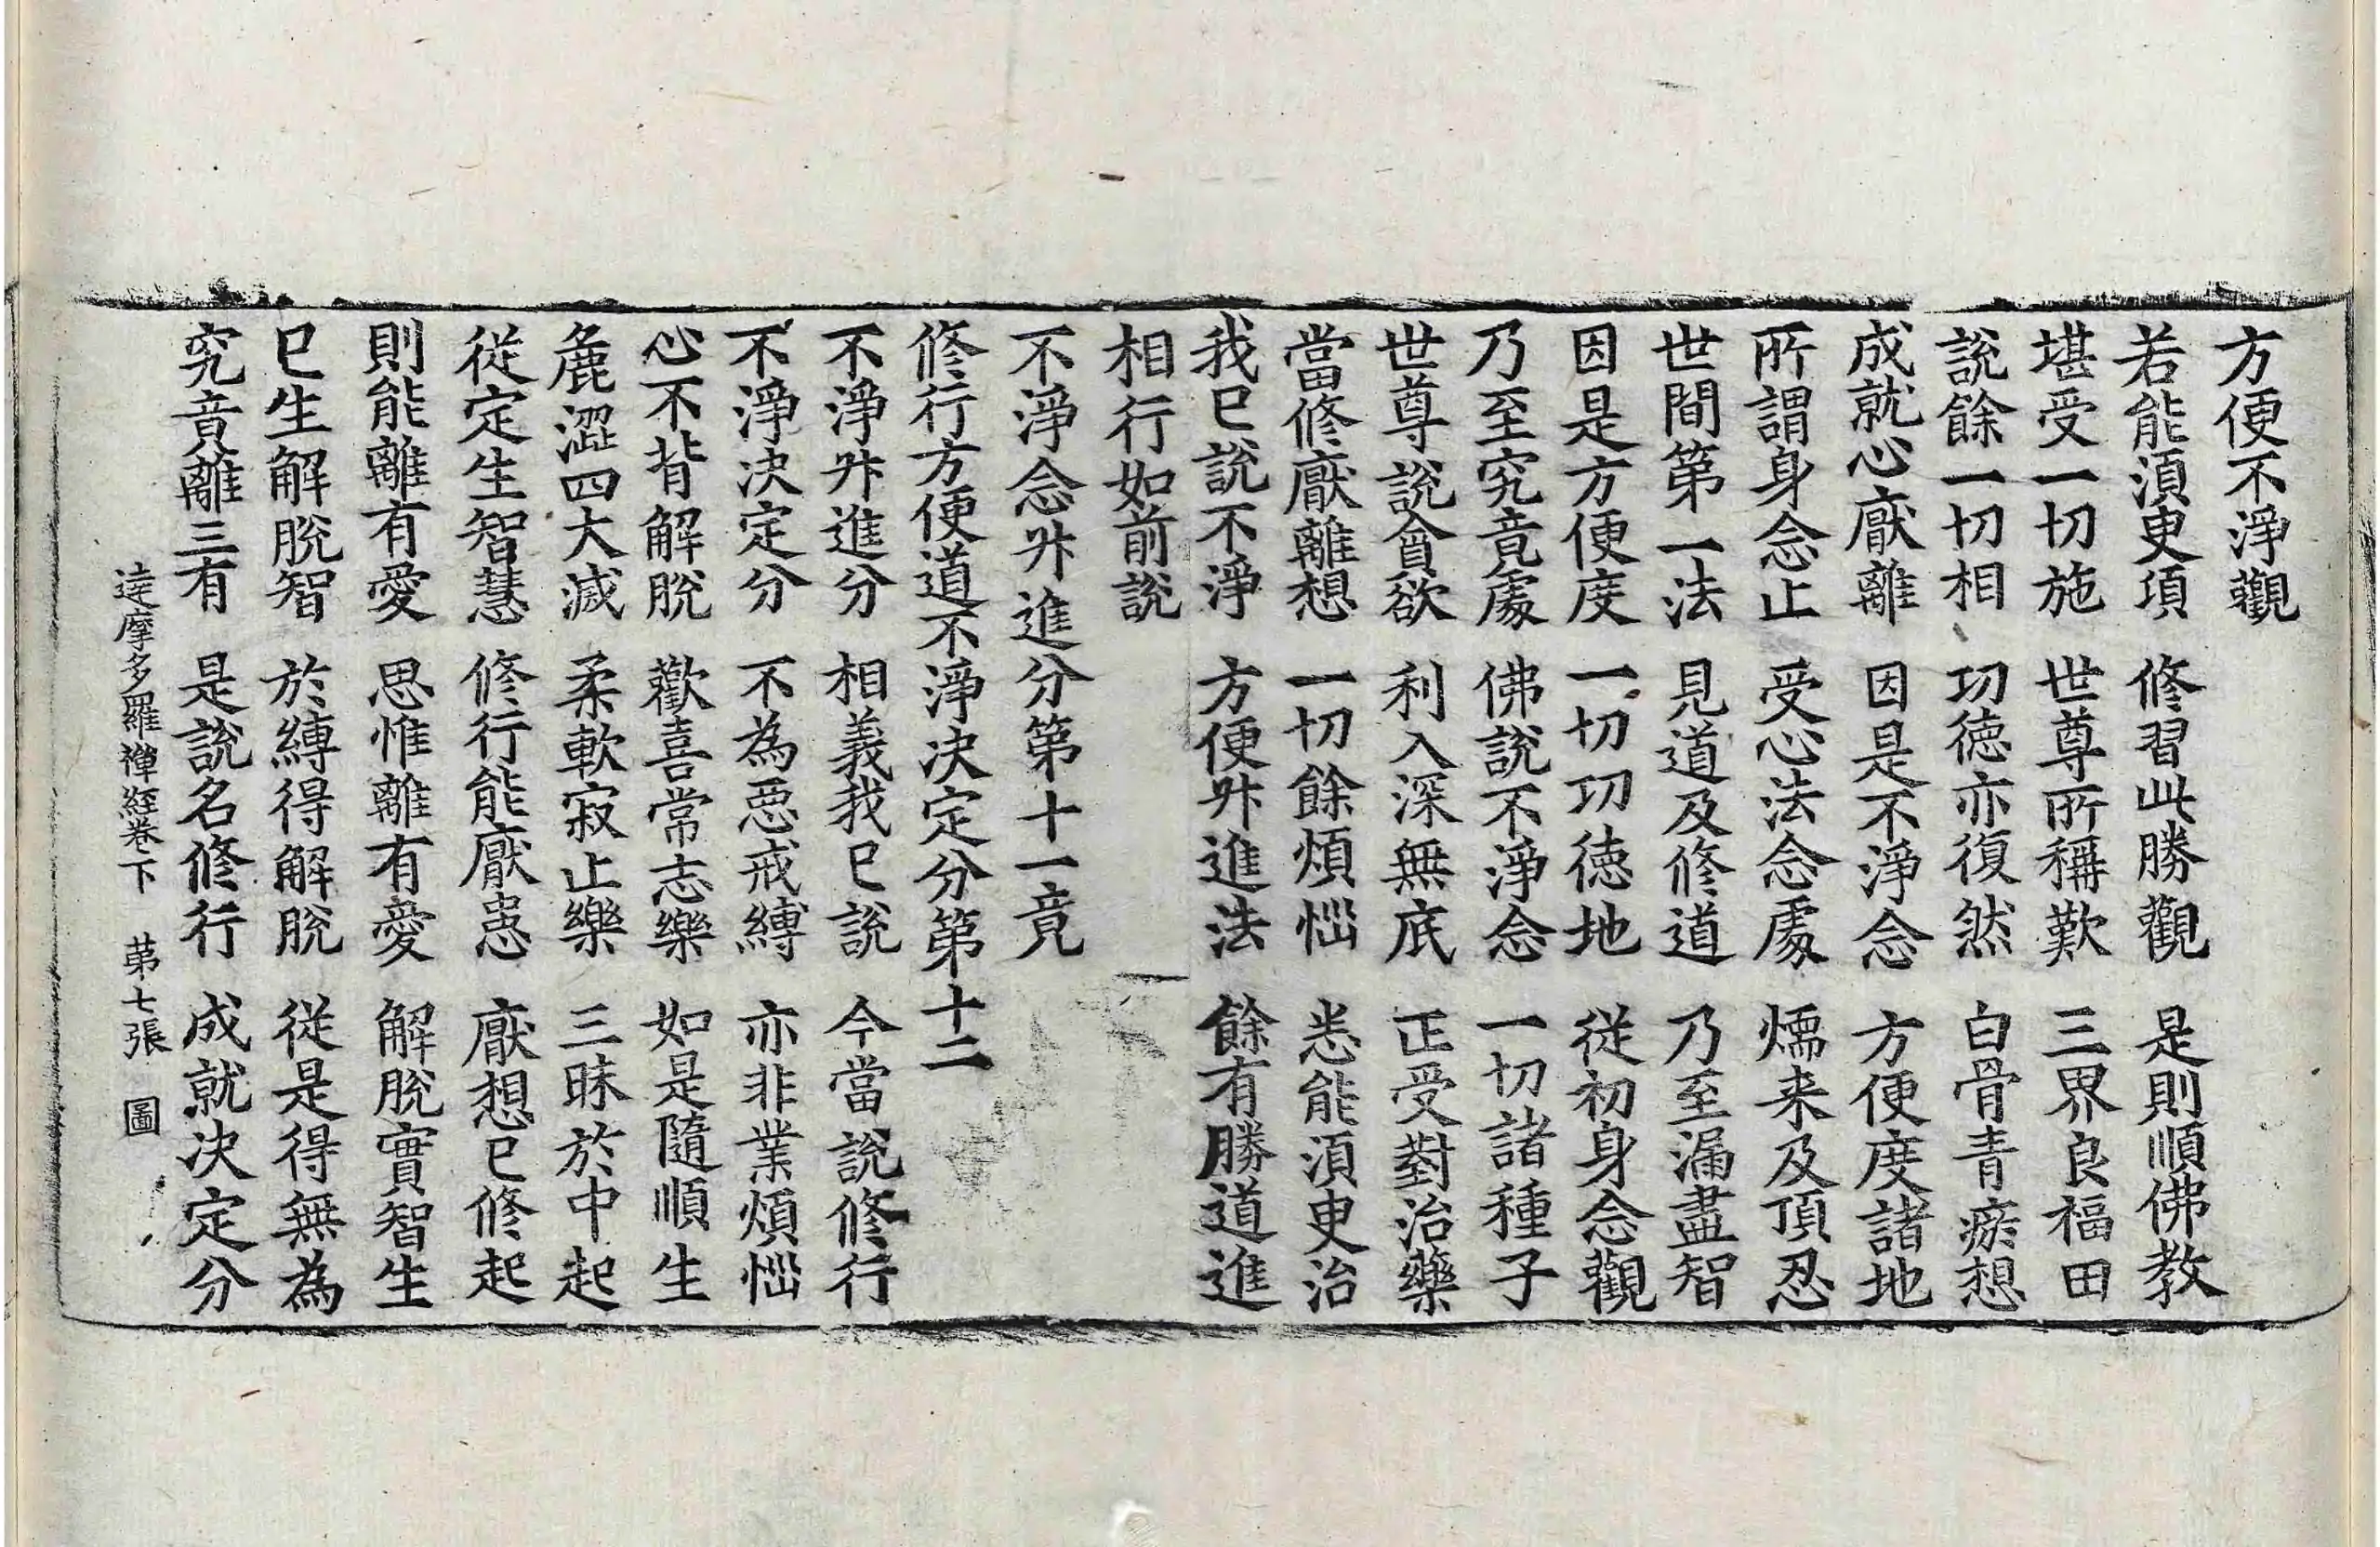 方便不淨觀
若能須臾頃　修習此勝觀　是則順佛教
堪受一切施　世尊所稱歎　三界良福田
說餘一切相　功德亦復然　白骨青瘀想
成就心厭離　因是不淨念　方便度諸地
所謂身念止　受心法念處　煗来及頂忍
世間第一法　見道及修道　乃至漏盡智
因是方便度　一切功德地　從初身念觀
乃至究竟處　佛說不淨念　一切諸種子
世尊說貪欲　利入深無底　正受對治藥
當修厭離想　一切餘煩惱　悉能須臾治
我已說不淨　方便升進法　餘有勝道進
相行如前說
不淨念升進分第十一竟
修行方便道不淨决定分第十二
不淨升進分　相義我已說　今當說修行
不淨决定分　不為惡戒縛　亦非業煩惱
心不背解脫　歡喜常志樂　如是隨順生
麁澀四大滅　柔軟寂止樂　三昧於中起
從定生智慧　修行能厭患　厭想已修起
則能離有愛　思惟離有愛　解脫實智生
已生解脫智　於縛得解脫　從是得無為
究竟離三有　是說名修行　成就决定分
達摩多羅禪經卷下　第七張　圖